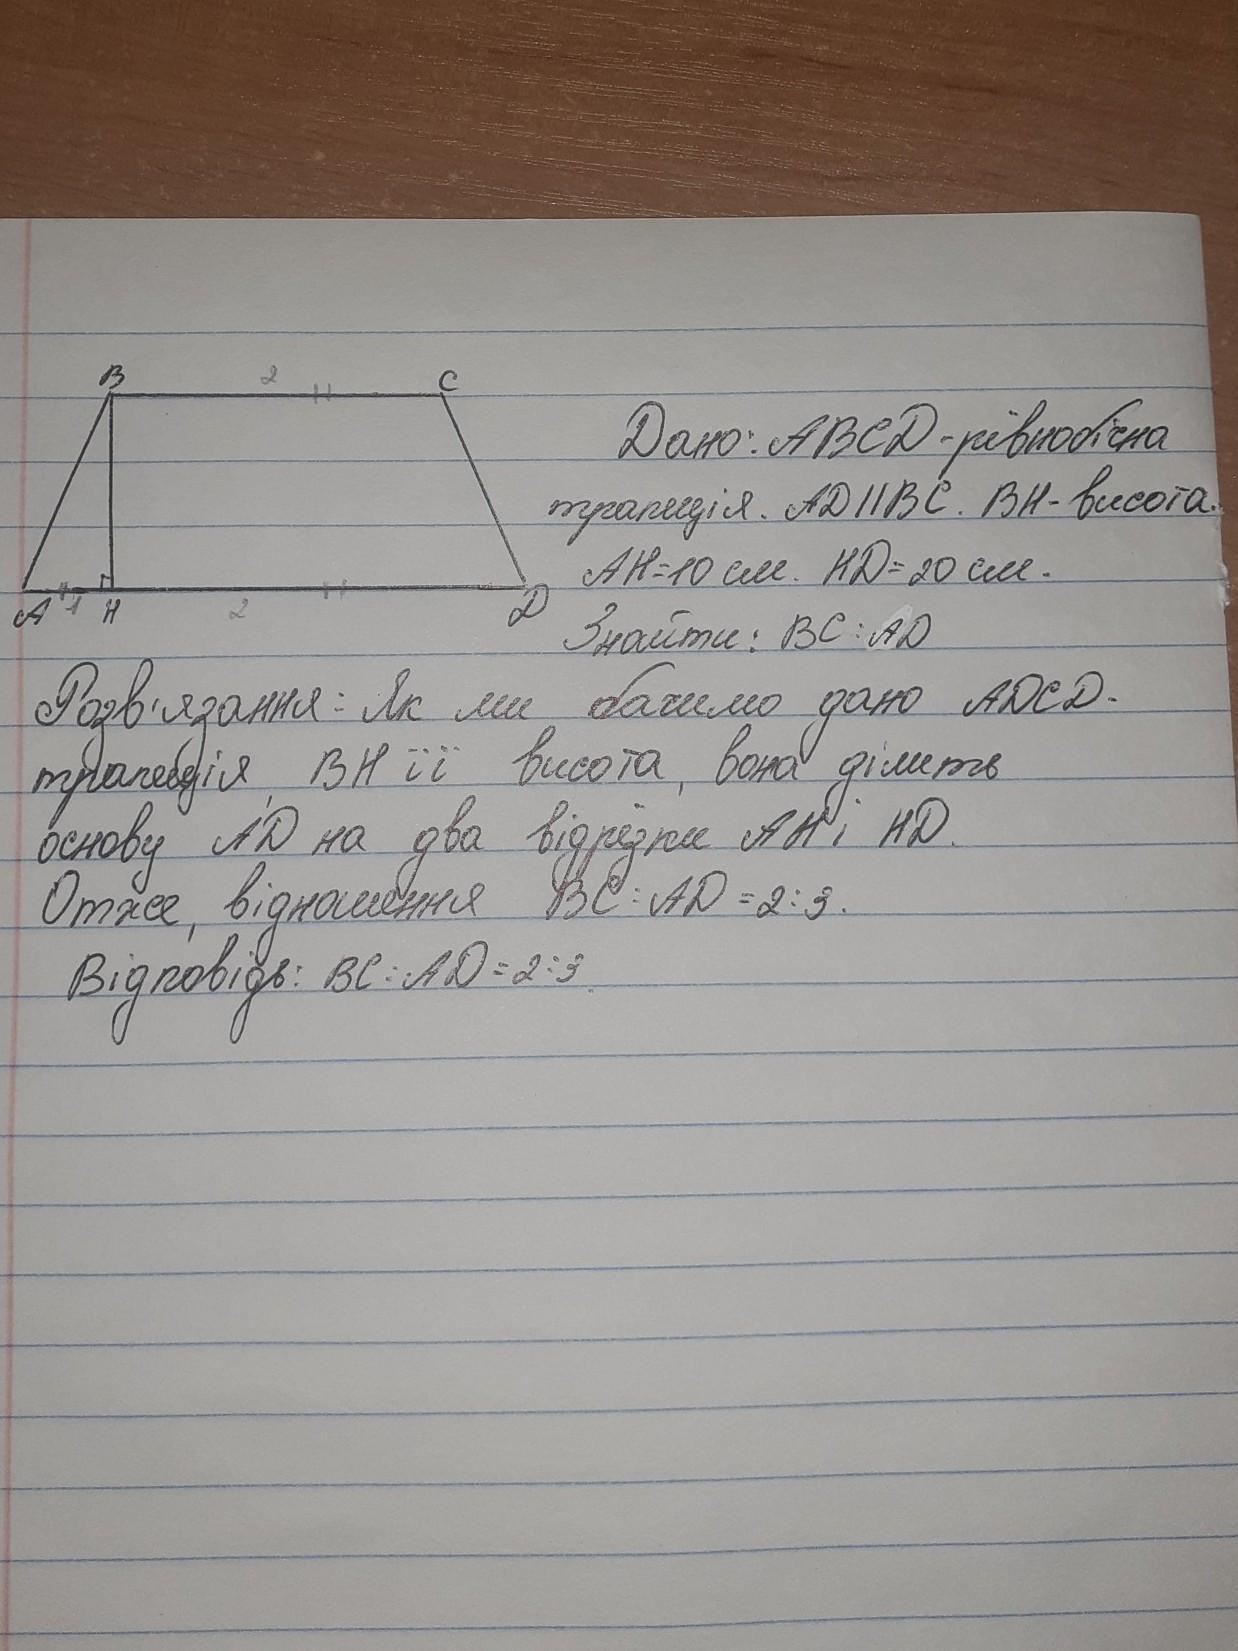 B 2 C
Дано: ABCD-рівнобічна
трапеція. AD||BC. BH- висота.
AH=10 см. HD=20 см.
A 1 H 2 D
Знайти: BC:AD
Розв'язання: Як ми бачимо дано ADCD-
трапеція, BH її висота, вона ділить
основу AD на два відрізки AH і HD.
Отже, відношення BC:AD=2:3.
Відповідь: BC:AD=2:3.